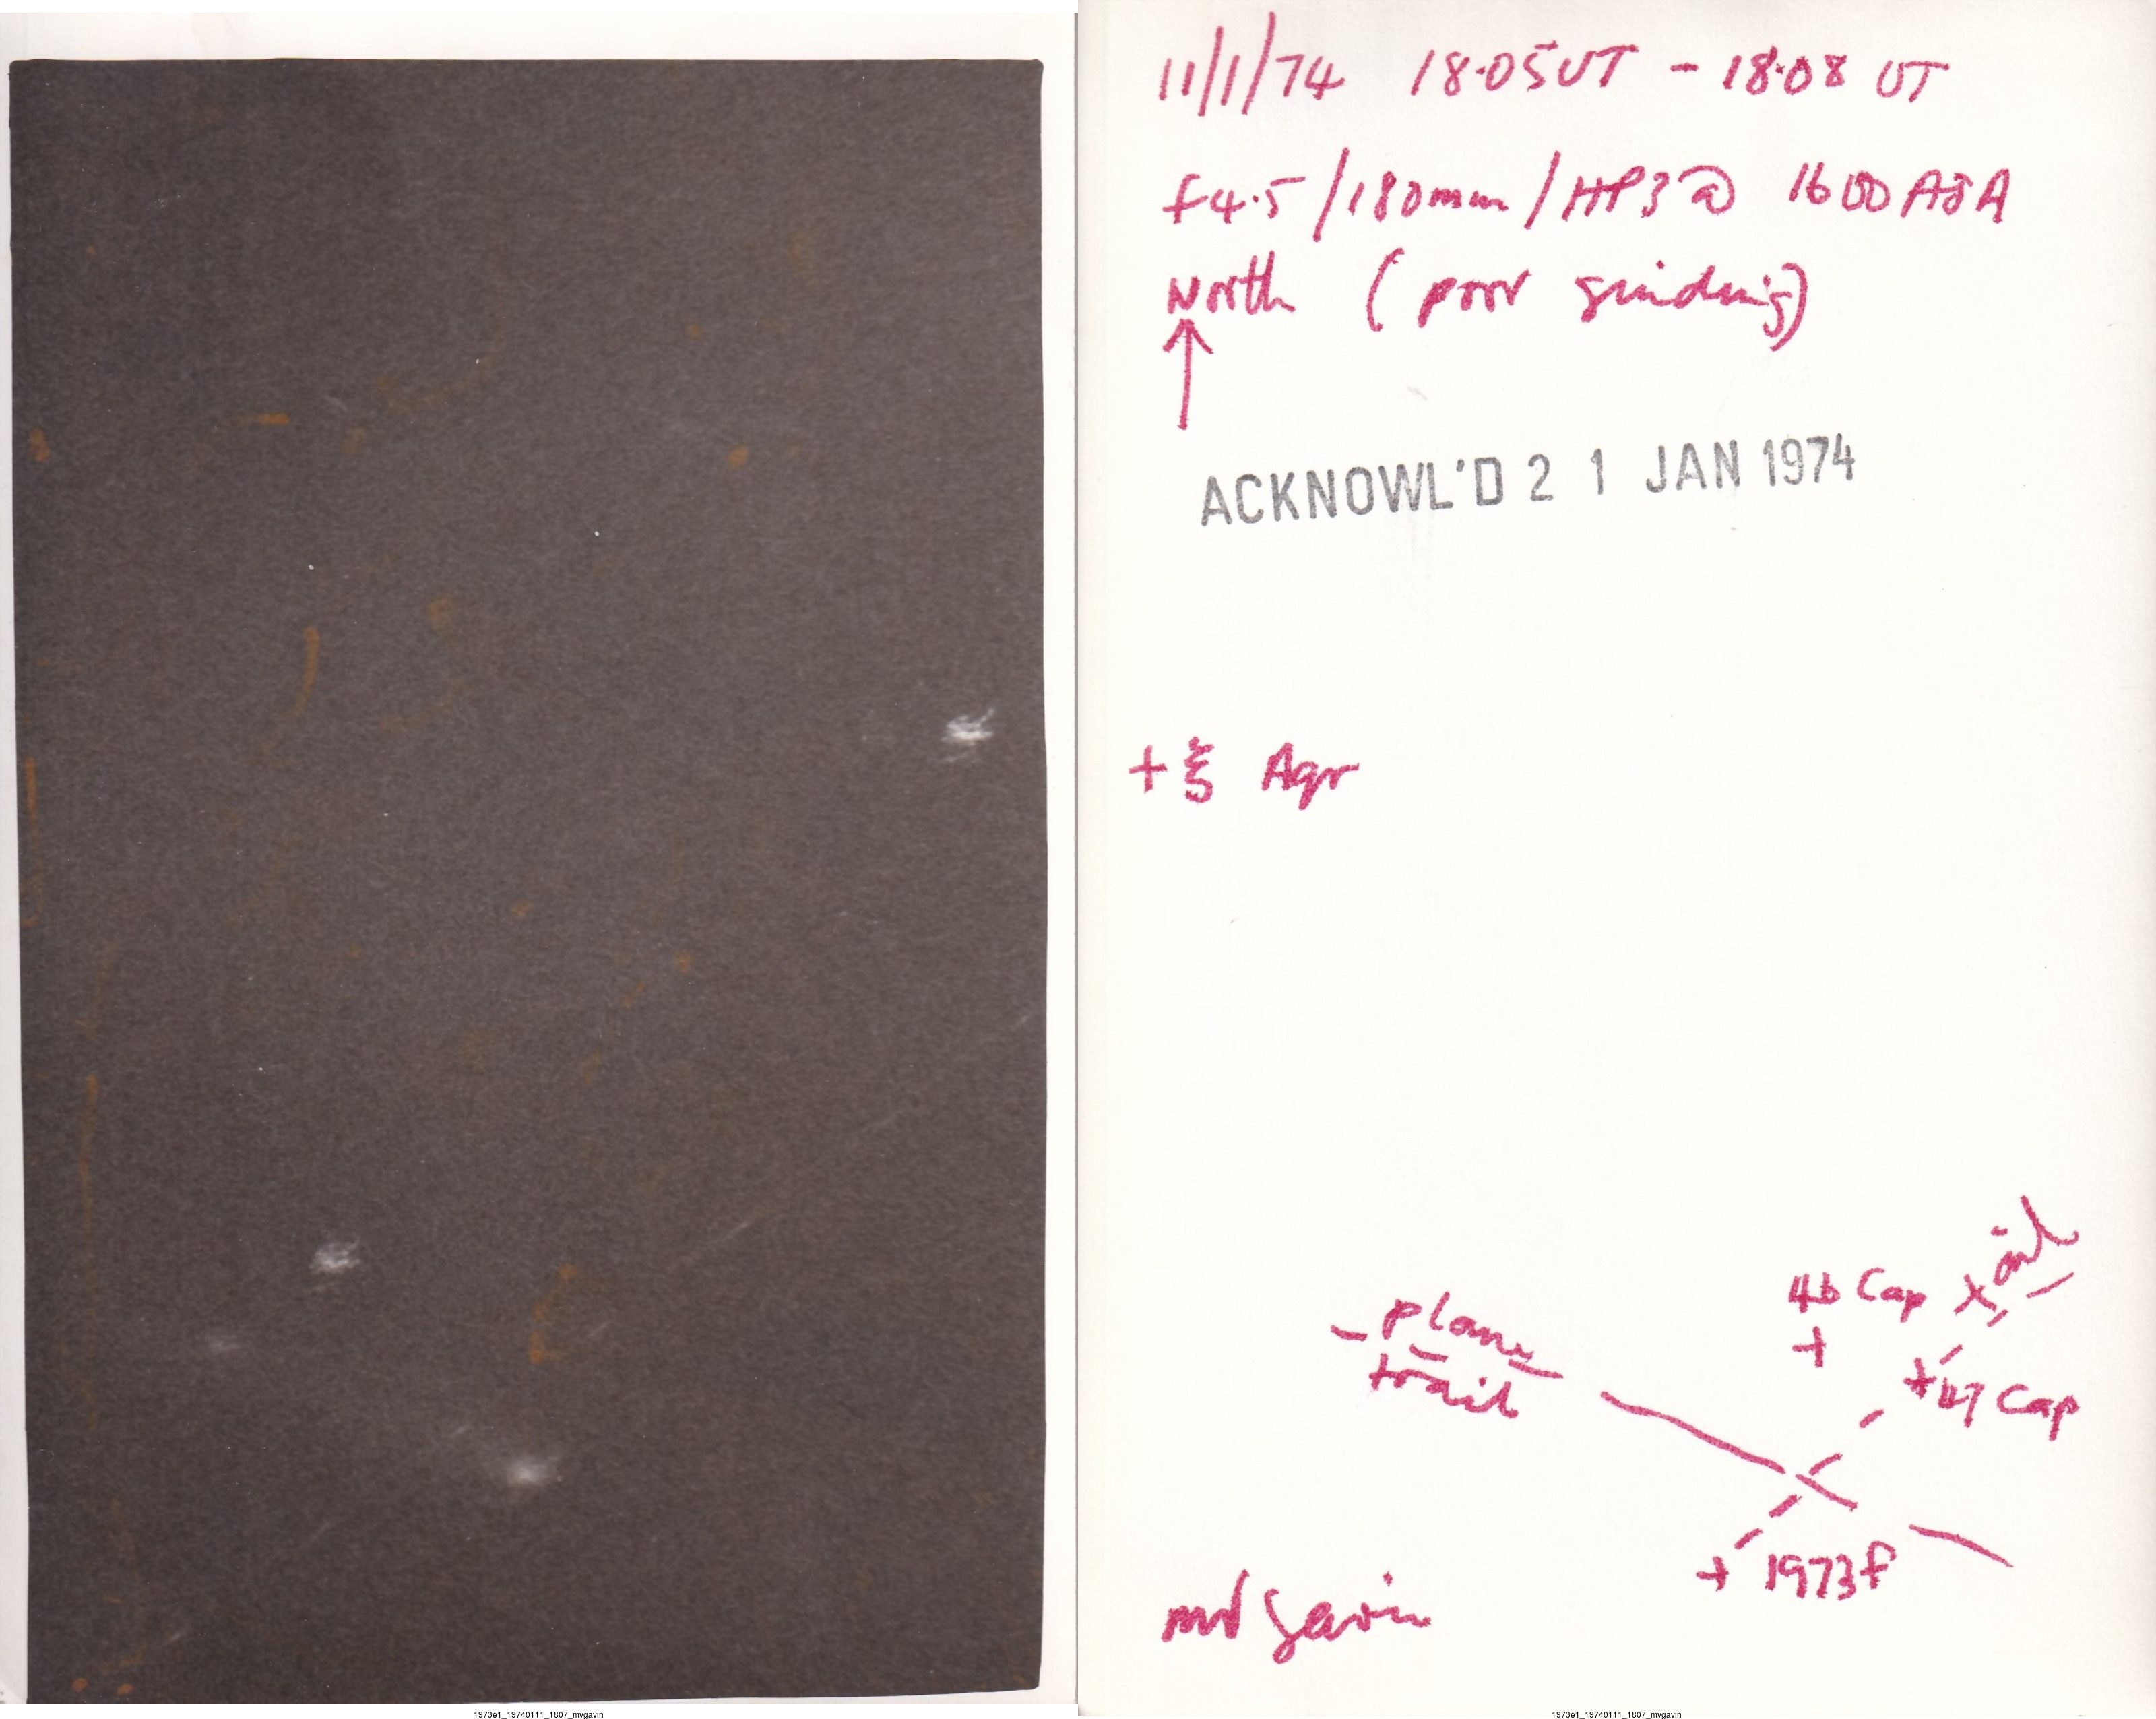 11/1/74 18.05 UT - 18.08 UT
f4.5 / 180mm / HP3 @ 1600 ASA
North (poor guiding)
ACKNOWL'D 2 1 JAN 1974
+ ξ Aqr
tail
46 Cap
+
+ 47 Cap
plane
trail
+ 1973f
mv gavin
1973e1_19740111_1807_mvgavin
1973e1_19740111_1807_mvgavin